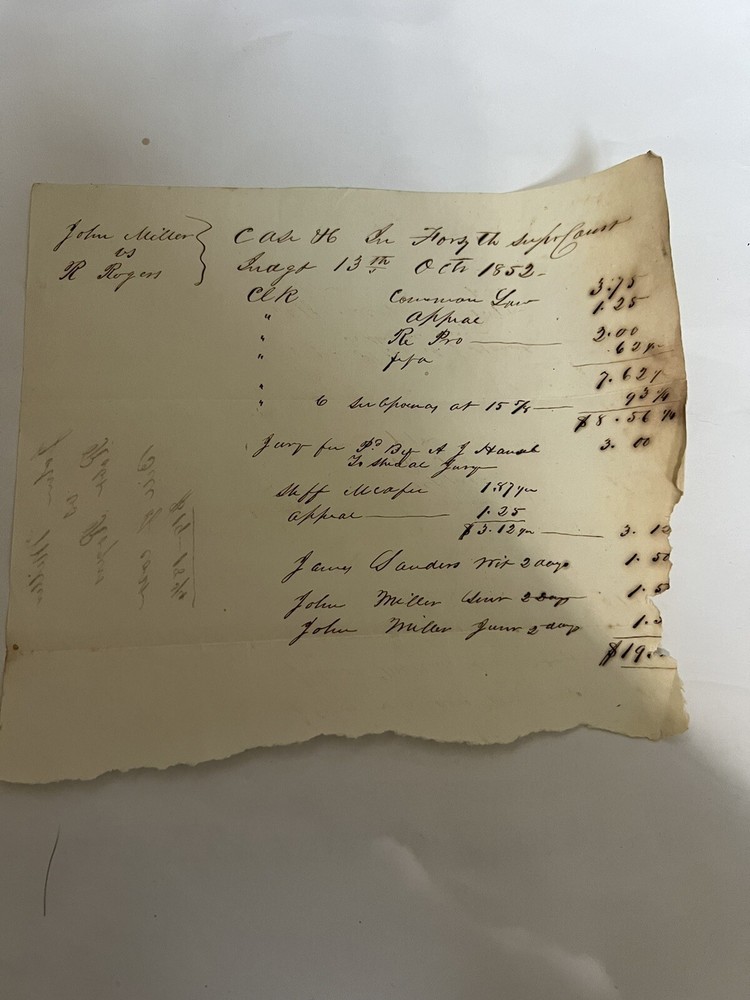 John Miller
vs
R Rogers
Case &c In Forsyth Supr Court
Judgt 13th Octr 1852
Clk Common Law 3.75
" Appeal 1.25
" Re Pro 2.00
" fifa .62½
7.62½
" 6 Subpoenas at 15 ⅝ 93¾
$8.56¼
Jury fee Pd By A J
3.00
Special Jury
Shff 1.87½
Appeal 1.25
$3.12½ 3.12
James Sanders Wit 2 days 1.50
John Miller Senr 2 days 1.5
John Miller Junr 2 days 1.5
$19.